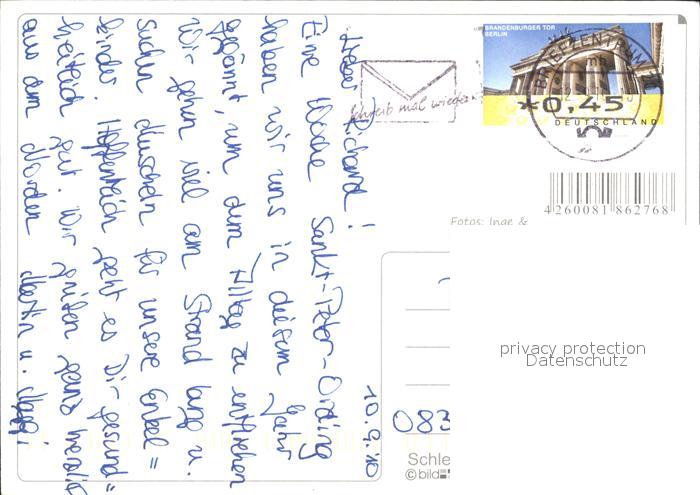 10.9.10
Lieber Richard!
Eine Woche Sankt-Peter-Ording
haben wir uns in diesem Jahr
gegönnt, um dem Alltag zu entfliehen
Wir gehen viel am Strand lang u.
suchen Muscheln für unsere Enkel=
kinder. Hoffentlich geht es Dir gesund=
heitlich gut. Wir grüßen ganz herzlich
aus dem Norden Martin u.
BRANDENBURGER TOR
BERLIN
*0,45
DEUTSCHLAND
BRIEFZENTRUM
Schreib mal wieder
4260081 862768
Fotos: Inge &
privacy protection
Datenschutz
083
Schle
©bild